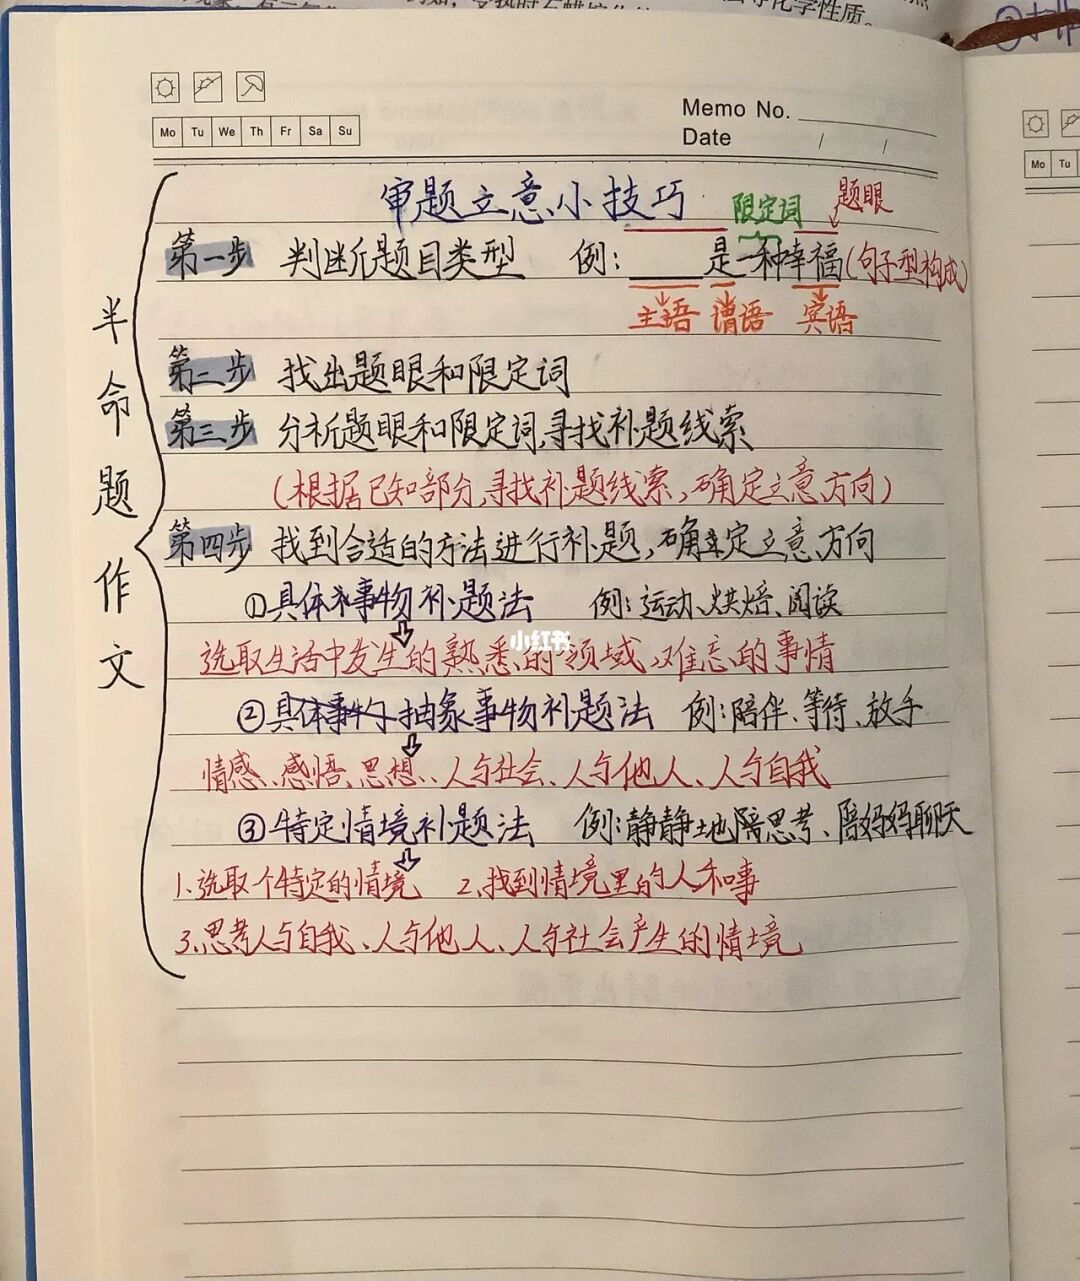 等化学性质。
Memo No.
Mo Tu We Th Fr Sa Su
Date / /
半命题作文
审题立意小技巧
限定词 题眼
第一步 判断题目类型 例：____是一种幸福(句子型构成)
主语 谓语 宾语
第二步 找出题眼和限定词
第三步 分析题眼和限定词,寻找补题线索
(根据已知部分,寻找补题线索,确定立意方向)
第四步 找到合适的方法进行补题,确定立意方向
①具体事物补题法 例:运动、烘焙、阅读
小红书
选取生活中发生的熟悉的领域,难忘的事情
②具体事物抽象事物补题法 例:陪伴、等待、放手
情感、感悟、思想、人与社会、人与他人、人与自我
③特定情境补题法 例:静静地陪思考、陪妈妈聊天
1.选取个特定的情境 2.找到情境里的人和事
3.思考人与自我、人与他人、人与社会产生的情境
Mo Tu